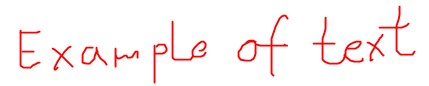 Example of text